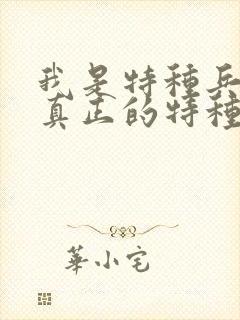 我是特種兵
真正的特種
華小宅